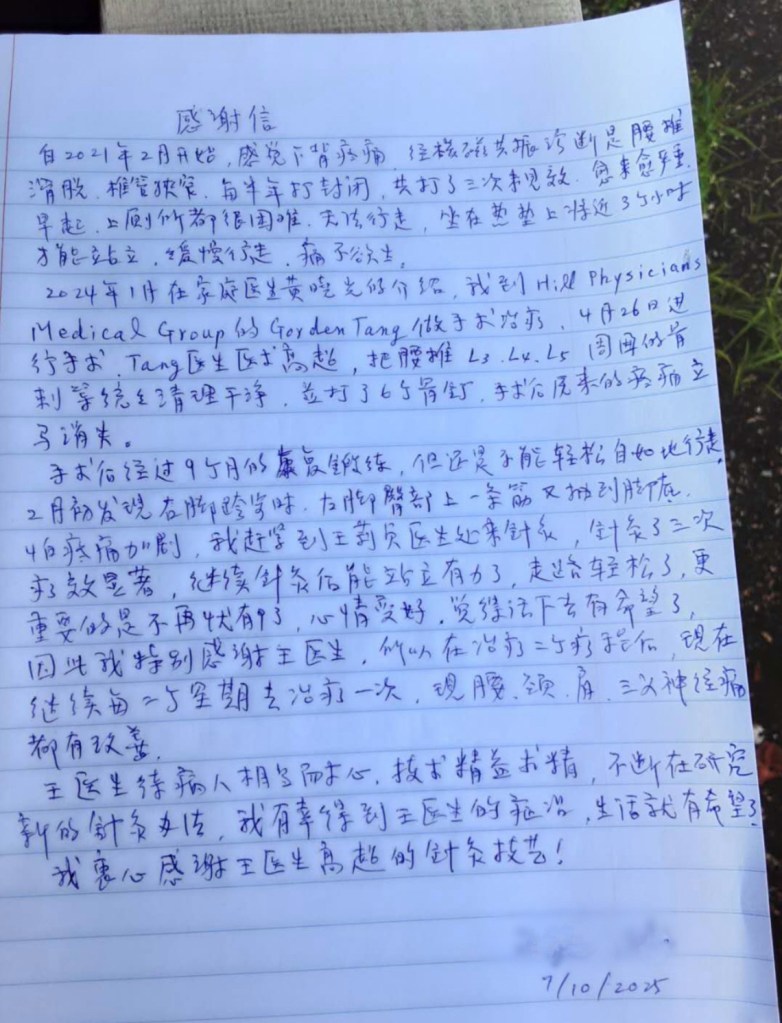 感谢信
自2021年2月开始，感觉下背疼痛，经核磁共振诊断是腰椎
滑脱、椎管狭窄，每半年打封闭，共打了三次未见效，愈来愈严重
早起、上厕所都很困难，无法行走，坐在热垫上将近3个小时
才能站立，缓慢行走，痛不欲生。
2024年1月在家庭医生黄晓光的介绍，我到Hill Physicians
Medical Group的Gorden Tang做手术治疗，4月26日进
行手术，Tang医生医术高超，把腰椎L3、L4、L5周围的骨
刺等统统清理干净，並打了6个骨钉，手术后原来的疼痛立
马消失。
手术后经过9个月的康复锻练，但还是不能轻松自如地行走，
2月初发现右脚跨步时，右脚臀部上一条筋又抽到脚底，
疼痛加剧，我赶紧到王医生处来针灸，针灸了三次
疗效显著，继续针灸后能站立有力了，走路轻松了，更
重要的是不再忧有了，心情变好，觉得活下去有希望了，
因此我特别感谢王医生，所以在治疗二个疗程后，现在
继续每二个星期去治疗一次，现腰、颈、肩、三叉神经痛
都有改善。
王医生待病人相当耐心，技术精益求精，不断在研究
新的针灸办法，我有幸得到王医生的治，生活就有希望了
我衷心感谢王医生高超的针灸技艺！
7/10/2025